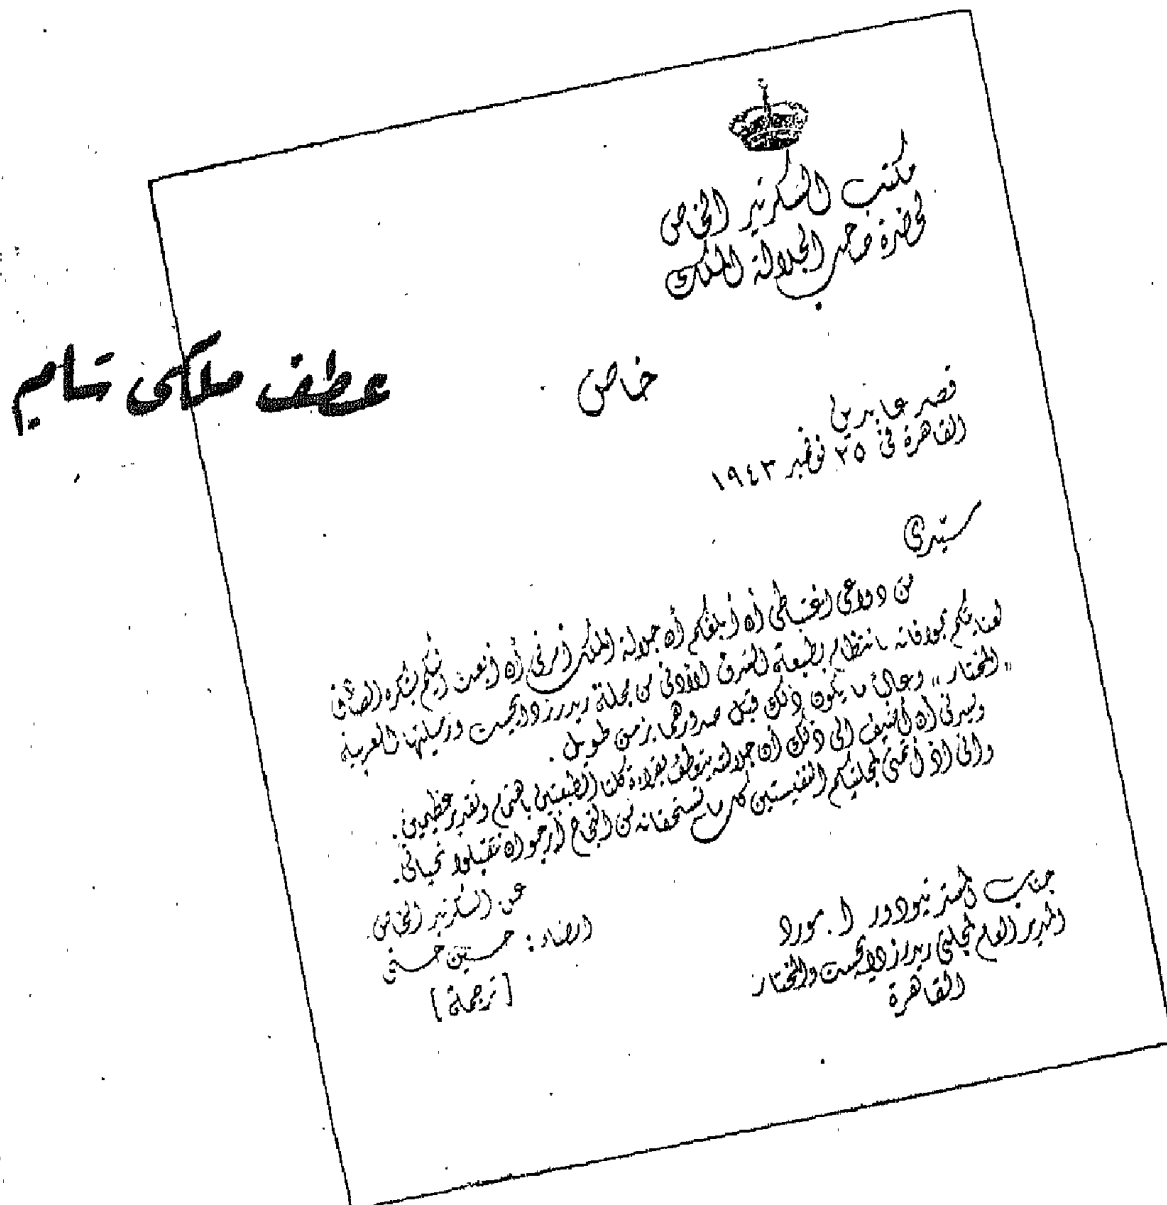 مكتب السكرتير الخاص
لحضرة صاحب الجلالة الملك
عطف ملكى سام
خاص
قصر عابدين
القاهرة فى ٢٥ نوفمبر ١٩٤٣
سيدى
من دواعى اغتباطى أن أبلغكم أن جلالة الملك أمرنى أن أبعث إليكم بشكره الصادق
لعنايتكم بموافاته بانتظام بطبعة الشرق الأدنى من مجلة ريدرز دايجست وزميلتها العربية
"المختار" وغالبا ما يكون ذلك قبل صدورهما بزمن طويل.
ويسرنى أن أضيف إلى ذلك أن جلالته يتوفر بقراءة كلتا الطبعتين باهتمام وتقدير عظيمين.
وإنى إذ أتمنى لمجلتيكم النفيستين كل ما تستحقانه من النجاح أرجو أن تتقبلوا تحياتى.
عن السكرتير الخاص
امضاء: حسين حسنى
[ترجمة]
جناب المستر تيودور ا. مورد
المدير العام لمجلتى ريدرز دايجست والمختار
القاهرة